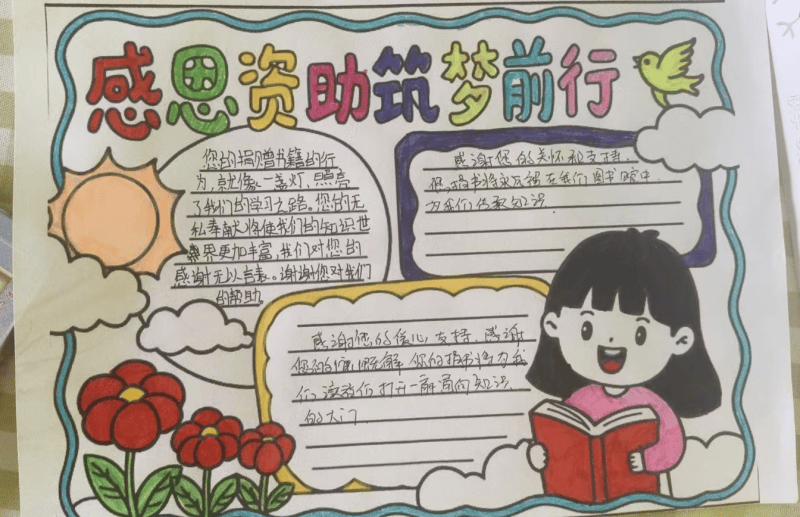 感恩资助筑梦前行
您的捐赠书籍的行
为,就像一盏灯,照亮
了我们的学习之路。您的无
私奉献将使我们的知识世
界更加丰富,我们对您的
感谢无以言表。谢谢您对我们
的帮助
感谢您的关怀和支持,
您捐书将永远摆在我们图书馆中
为我们传递知识
感谢您的信心支持,感谢
您的慷慨解 你的捐书将为我
们 打开一扇通向知识
的大门